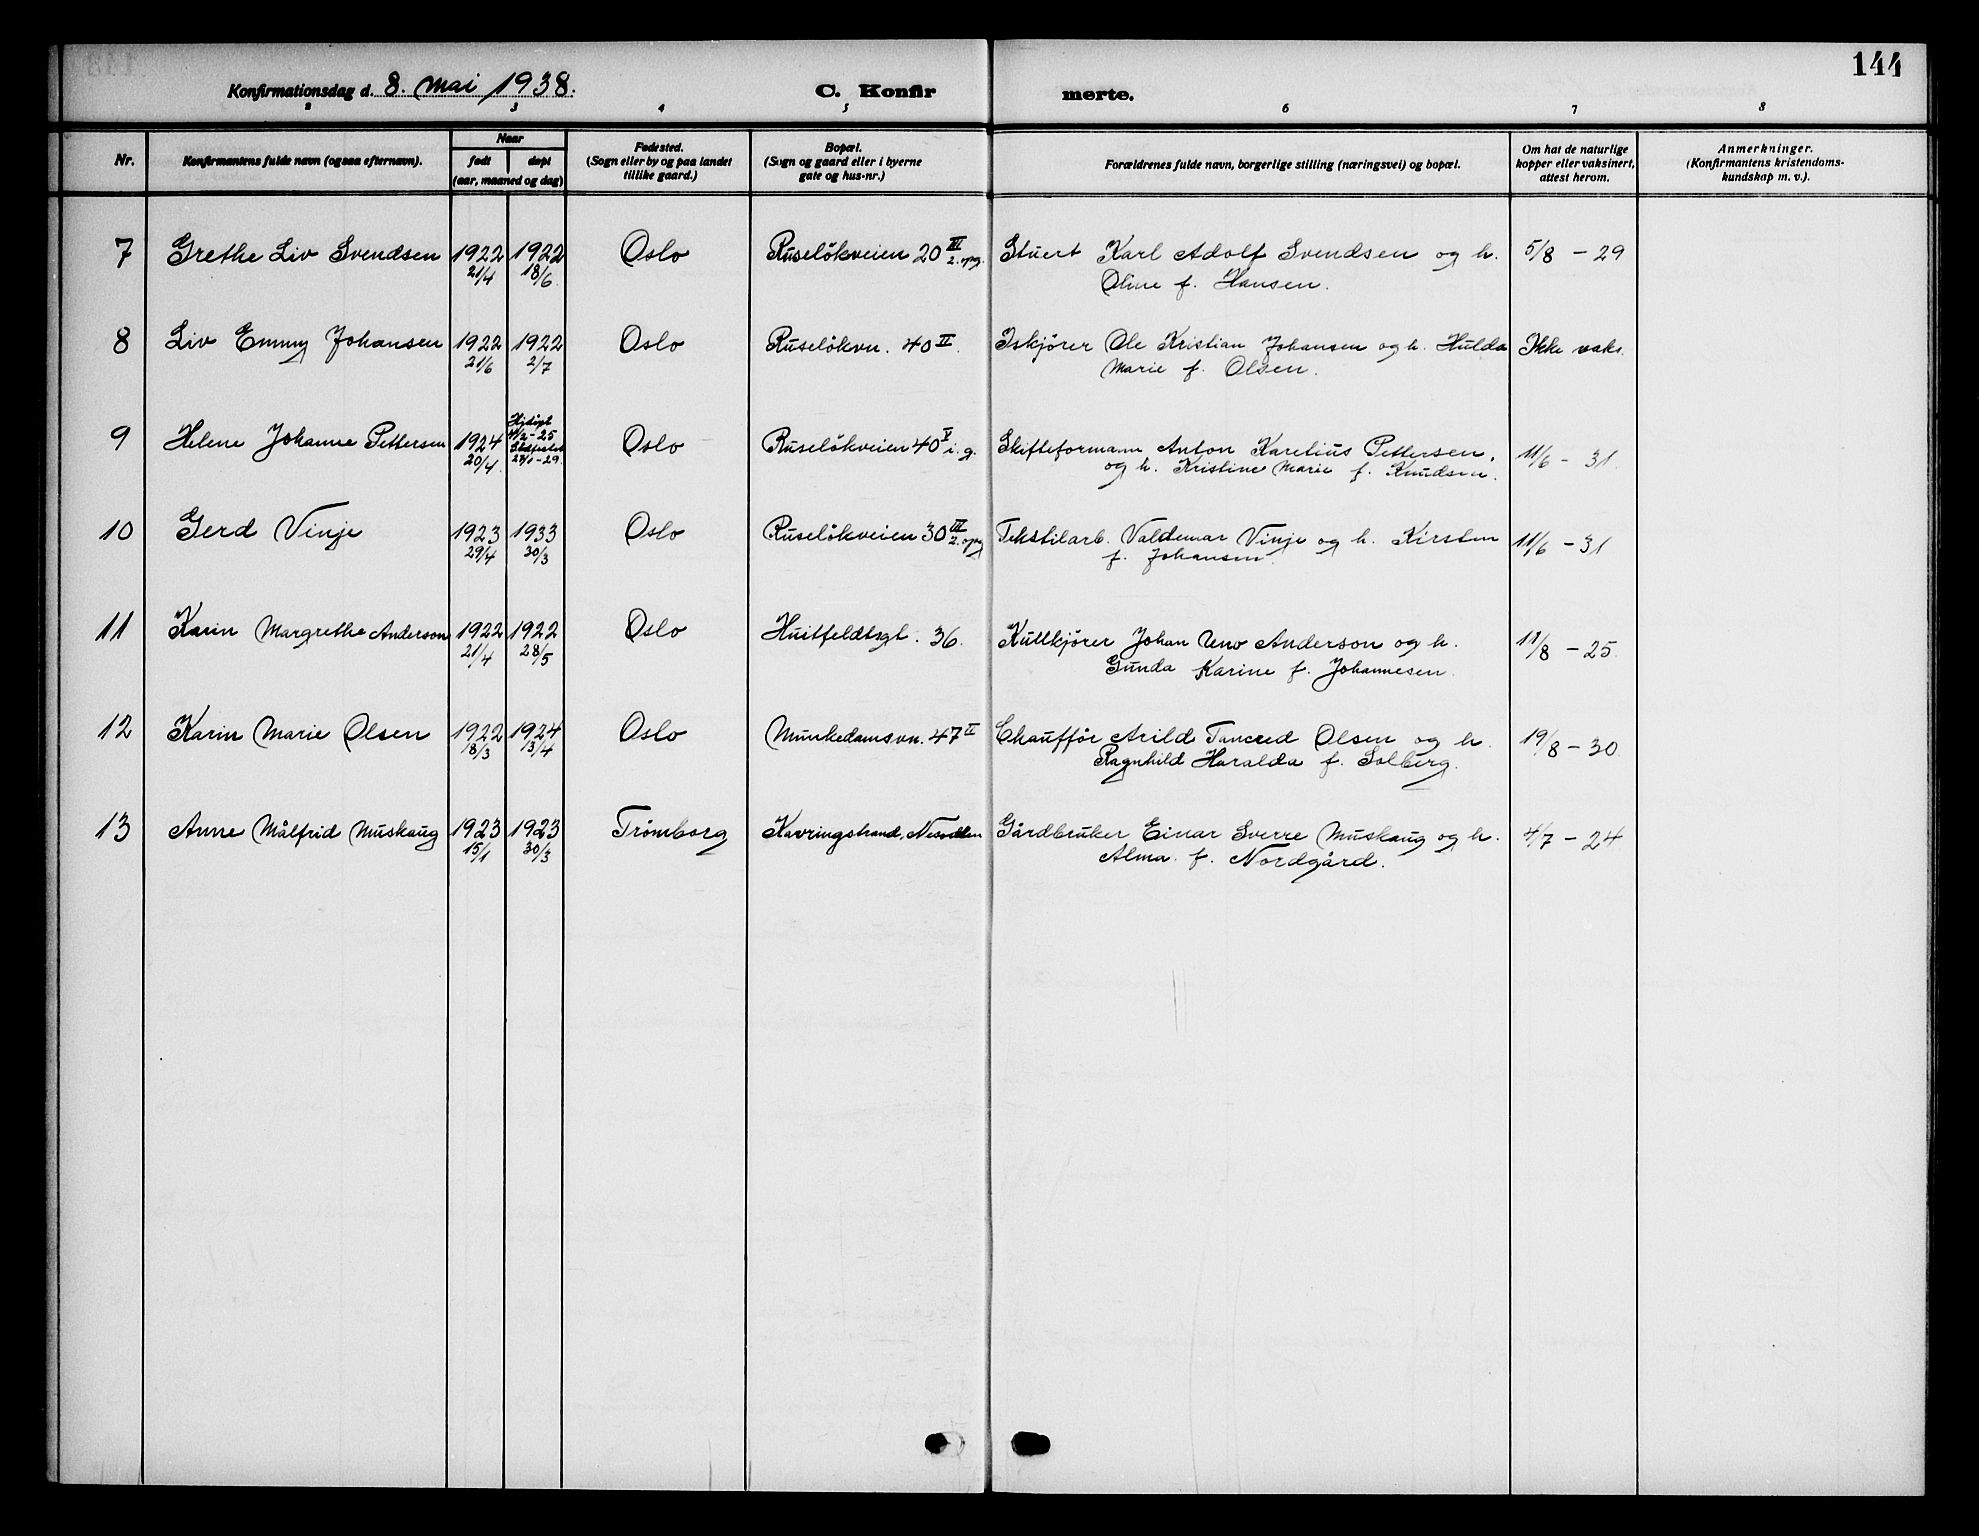 144
Konfirmationsdag d. 8. mai 1938. C. Konfir merte.
2 3 4 5 6 7 8
Nr.
Konfirmantens fulde navn (ogsaa efternavn).
Naar
født døpt
(aar, maaned og dag)
Fødested.
(Sogn eller by og paa landet
tillike gaard.)
Bopæl.
(Sogn og gaard eller i byerne
gate og hus-nr.)
Forældrenes fulde navn, borgerlige stilling (næringsvei) og bopæl.
Om hat de naturlige
kopper eller vaksinert,
attest herom.
Anmerkninger.
(Konfirmantens kristendoms-
kundskap m. v.).
7 Grethe Liv Svendsen 1922 1922 Oslo Ruseløkveien 20 III Stuert Karl Adolf Svendsen og h. 5/8 - 29
21/4 18/6 2. opg. f. Hansen.
8 Liv Emmy Johansen 1922 1922 Oslo Ruseløkvn. 40 II. Iskjører Ole Kristian Johansen og h. Hulda Ikke vaks.
21/6 2/7 Marie f. Olsen.
9 Helene Johanne Pettersen 1924 Hjdøpt Oslo Ruseløkveien 40 V i. g. Skifteformann Anton Karelius Pettersen. 11/6 - 31
20/4 4/2-25 og h. Kristine Marie f. Knudsen.
23/1-29
10 Gerd Vinje 1923 1933 Oslo Ruseløkveien 30 III Tekstilarb. Valdemar Vinje og h. Kirsten 11/6 - 31
29/4 30/3 2. opg f. Johansen
11 Karin Margrethe Anderson 1922 1922 Oslo Huitfeldtsgt. 36. Kullkjører Johan Uno Anderson og h. 11/8 - 25
21/4 28/5 Gunda Karine f. Johannesen.
12 Karin Marie Olsen 1922 1924 Oslo Munkedamsvn. 47 II Chauffør Arild Tancred Olsen og h. 19/8 - 30
18/3 13/4 Ragnhild Haralda f. Solberg.
13 Anne Målfrid Muskaug 1923 1923 Trømborg Kavringstrand, Gårdbruker Einar Sverre Muskaug og h. 4/7 - 24
15/1 30/3 Alma f. Nordgård.